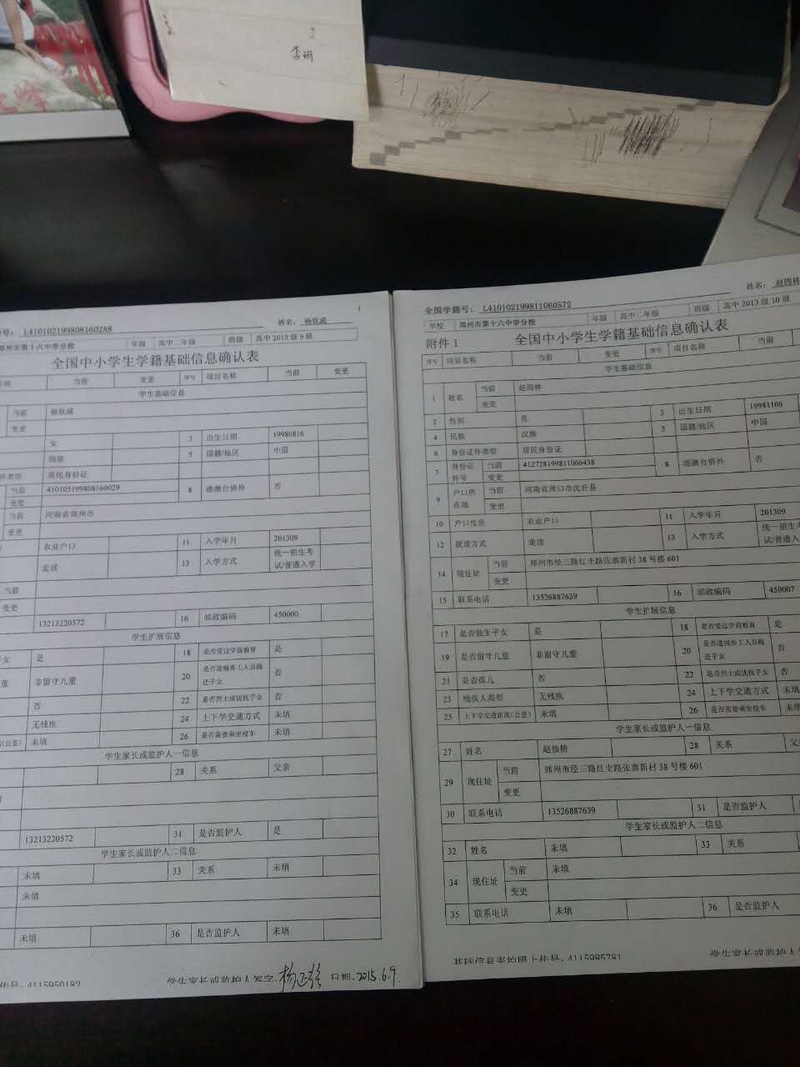 李明
号: L410102199808160288 姓名: 杨钦威
郑州市第十六中学分校 年级 高中二年级 班级 高中2013级9班
全国中小学生学籍基础信息确认表
当前 变更 序号 项目名称 当前 变更
学生基础信息
当前 杨钦威
变更
女 3 出生日期 19980816
5 国籍/地区 中国
件类型 居民身份证
当前 410105199808160029 8 港澳台侨外 否
变更
当前 河南省郑州市
变更
农业户口 11 入学年月 201309
走读 13 入学方式 统一招生考试/普通入学
当前
变更
13213220572 16 邮政编码 450000
学生扩展信息
子女 是 18 是否受过学前教育 是
儿童 非留守儿童 20 是否进城务工人员随迁子女 否
否 22 是否烈士或优抚子女 否
无残疾 24 上下学交通方式 未填
(公里) 未填 26 是否需要乘坐校车 未填
学生家长或监护人一信息
28 关系 父亲
13213220572 31 是否监护人 是
学生家长或监护人二信息
未填 33 关系 未填
未填
未填 36 是否监护人 未填
学生家长或监护人签字: 杨正强 日期: 2015.6.9
全国学籍号: L410102199811060572 姓名: 赵四林
学校 郑州市第十六中学分校 年级 高中二年级 班级 高中2013级10班
附件1 全国中小学生学籍基础信息确认表
序号 项目名称 当前 变更 序号 项目名称 当前
学生基础信息
1 姓名 当前 赵四林
变更
2 性别 男 3 出生日期 19981106
4 民族 汉族 5 国籍/地区 中国
6 身份证件类型 居民身份证
7 身份证件号 当前 412728199811066438 8 港澳台侨外 否
变更
9 户口所在地 当前 河南省周口市沈丘县
变更
10 户口性质 农业户口 11 入学年月 201309
12 就读方式 走读 13 入学方式 统一招生考试/普通入
14 现住址 当前 郑州市经三路红专路张寨新村38号楼601
变更
15 联系电话 13526887639 16 邮政编码 450007
学生扩展信息
17 是否独生子女 是 18 是否受过学前教育 是
19 是否留守儿童 非留守儿童 20 是否进城务工人员随迁子女 否
21 是否孤儿 否 22 是否烈士或优抚子女 否
23 残疾人类型 无残疾 24 上下学交通方式 未填
25 上下学交通距离(公里) 未填 26 是否需要乘坐校车 未填
学生家长或监护人一信息
27 姓名 28 关系 父
29 现住址 当前 郑州市经三路红专路张寨新村38号楼601
变更
30 联系电话 13526887639 31 是否监护人
学生家长或监护人二信息
32 姓名 未填 33 关系
34 现住址 当前 未填
变更
35 联系电话 未填 36 是否监护人
学生家长或监护人签字: